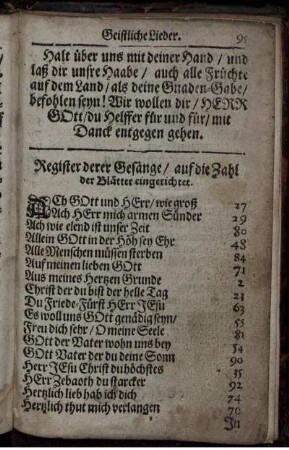 Geistliche Lieder. 95
Halt über uns mit deiner Hand / und
laß dir unsre Haabe / auch alle Früchte
auf dem Land / als deine Gnaden-Gabe /
befohlen seyn! Wir wollen dir / HERR
GOtt / du Helffer für und für / mit
Danck entgegen gehen.
Register derer Gesänge / auf die Zahl
der Blätter eingerichtet.
ACh GOtt und HErr / wie groß 27
Ach HErr mich armen Sünder 29
Ach wie elend ist unser Zeit 80
Allein GOtt in der Höh sey Ehr 48
Alle Menschen müssen sterben 84
Auf meinen lieben GOtt 71
Aus meines Hertzen Grunde 2
Christ der du bist der helle Tag 21
Du Friede-Fürst HErr JEsu 63
Es woll uns GOtt genädig seyn / 55
Freu dich sehr / O meine Seele 81
GOtt der Vater wohn uns bey 54
GOtt Vater der du deine Sonn 90
Herr JEsu Christ du höchstes 35
HErr Zebaoth du starcker 92
Hertzlich lieb hab ich dich 74
Hertzlich thut mich verlangen 70
In